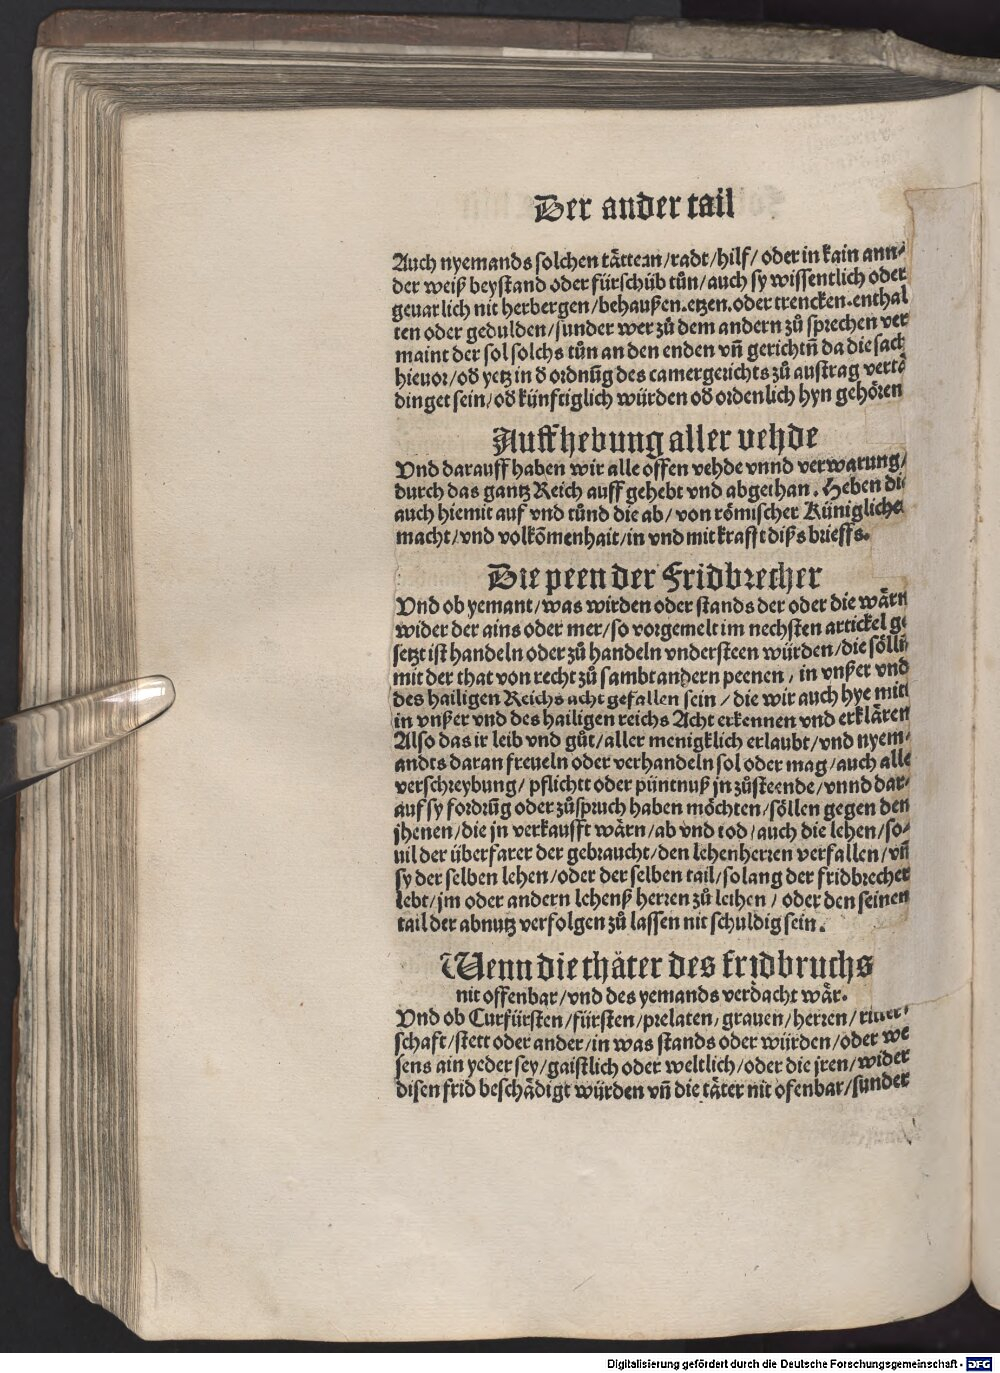 Der ander tail
Auch nyemands solchen tättern/radt/hilf/ oder in kain ann⸗
der weiß beystand oder fürschüb tůn/auch sy wissentlich oder
geuarlich nit herbergen/behaußen.etzen.oder trencken.enthal
ten oder gedulden/sunder wer zů dem andern zů sprechen ver
maint der sol solchs tůn an den enden vñ gerichtñ da die sach
hieuor/od yetz in d ordnũg des camergerichts zů austrag vertä
dinget sein/od künftiglich würden od ordenlich hyn gehören
Auffhebung aller vehde
Vnd darauff haben wir alle offen vehde vnnd verwarung/
durch das gantz Reich auff gehebt vnd abgethan. Heben die
auch hiemit auf vnd tůnd die ab/von römischer Küniglicher
macht/vnd volkõmenhait/in vnd mit krafft dißs brieffs.
Die peen der Fridbrecher
Vnd ob yemant/was wirden oder stands der oder die wärn
wider der ains oder mer/so vorgemelt im nechsten artickel ge
setzt ist handeln oder zů handeln vndersteen würden/die sölln
mit der that von recht zů sambt andern peenen/ in vnßer vnd
des hailigen Reichs acht gefallen sein/ die wir auch hye mit
in vnßer vnd des hailigen reichs Acht erkennen vnd erklären
Also das ir leib vnd gůt/aller menigklich erlaubt/vnd nyem⸗
andts daran freueln oder verhandeln sol oder mag/auch alle
verschreybung/ pflichtt oder püntnuß jn zůsteende/vnnd dar⸗
auf sy fordrũg oder zůspruch haben möchten/söllen gegen den
jhenen/die jn verkaufft wärn/ab vnd tod/auch die lehen/so⸗
uil der überfarer der gebraucht/den lehenherren verfallen/vñ
sy der selben lehen/oder der selben tail/so lang der fridbrecher
lebt/jm oder andern lehenß herren zů leihen/ oder den seinen
tail der abnutz verfolgen zů lassen nit schuldig sein.
Wenn die thäter des fridbruchs
nit offenbar/vnd des yemands verdacht wär.
Vnd ob Curfürsten/fürsten/prelaten/grauen/herren/ ritter⸗
schaft/stett oder ander/in was stands oder würden/oder we
sens ain yeder sey/gaistlich oder weltlich/oder die jren/wider
disen frid beschädigt würden vñ die täter nit ofenbar/sunder
Digitalisierung gefördert durch die Deutsche Forschungsgemeinschaft - DFG